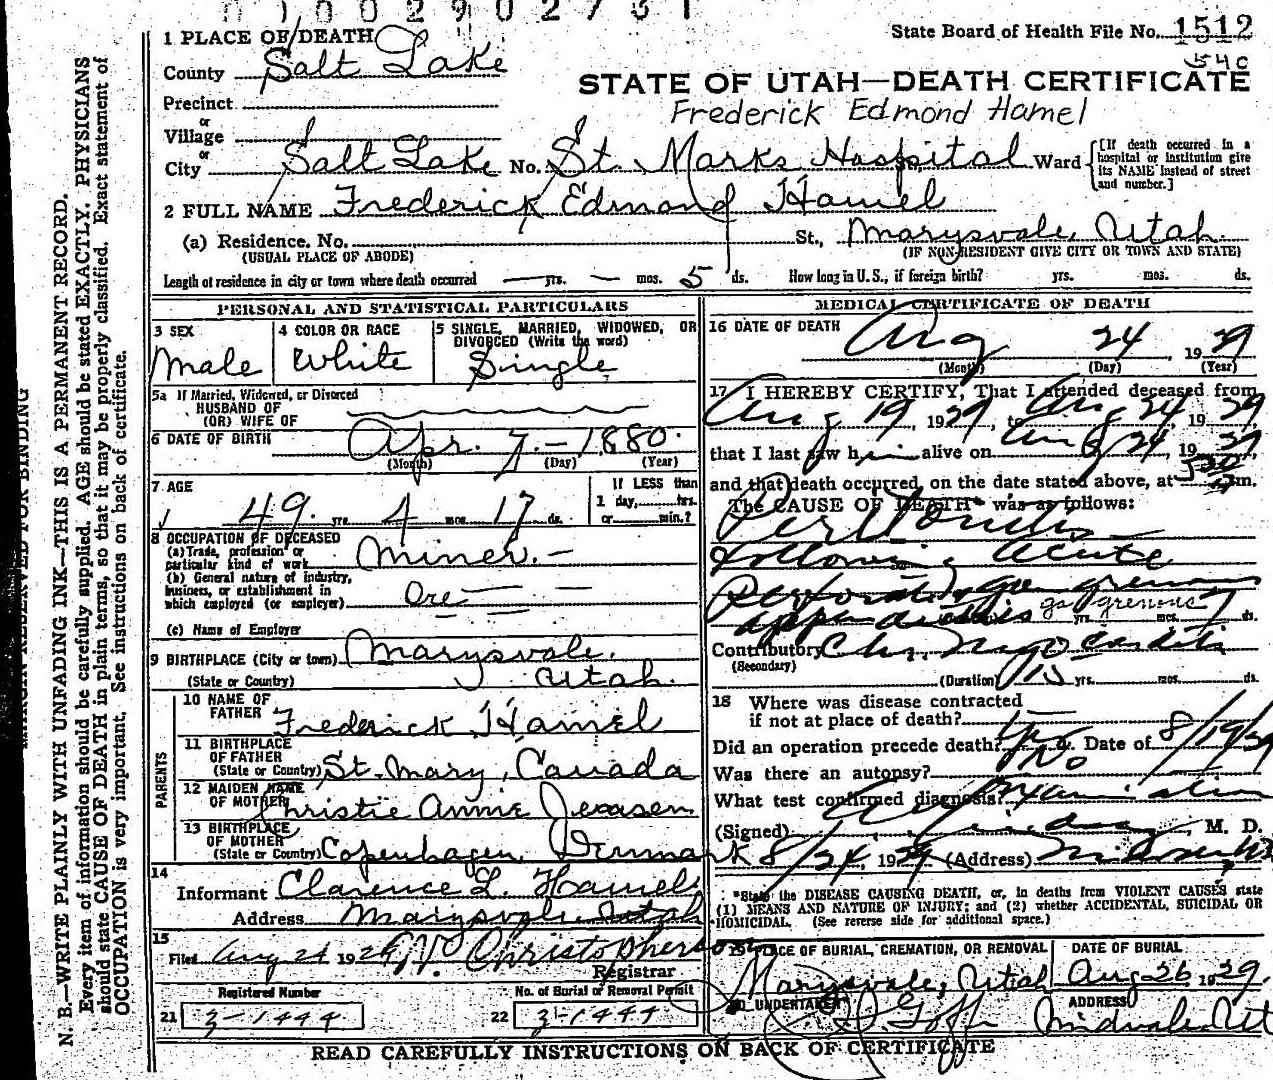 0 1 0 0 2 9 0 2 7 3 1
State Board of Health File No. 1512
54C
1 PLACE OF DEATH
County Salt Lake
STATE OF UTAH—DEATH CERTIFICATE
Precinct
Frederick Edmond Hamel
or
Village
or
City Salt Lake No. St. Marks Hospital Ward [If death occurred in a hospital or institution give its NAME instead of street and number.]
2 FULL NAME Frederick Edmond Hamel
(a) Residence. No. St., Marysvale, Utah.
(USUAL PLACE OF ABODE) (IF NON-RESIDENT GIVE CITY OR TOWN AND STATE)
Length of residence in city or town where death occurred — yrs. — mos. 5 ds. How long in U.S., if foreign birth? yrs. mos. ds.
PERSONAL AND STATISTICAL PARTICULARS
3 SEX
Male
4 COLOR OR RACE
White
5 SINGLE, MARRIED, WIDOWED, OR DIVORCED (Write the word)
Single
5a If Married, Widowed, or Divorced
HUSBAND OF
(OR) WIFE OF
6 DATE OF BIRTH Apr. 7.—1880.
(Month) (Day) (Year)
7 AGE
49 yrs. 4 mos. 17 ds.
If LESS than
1 day, hrs.
or min.?
8 OCCUPATION OF DECEASED
(a) Trade, profession or
particular kind of work Miner.—
(b) General nature of industry,
business, or establishment in
which employed (or employer) Ore
(c) Name of Employer
9 BIRTHPLACE (City or town) Marysvale.
(State or Country) Utah.
PARENTS
10 NAME OF
FATHER Frederick Hamel
11 BIRTHPLACE
OF FATHER
(State or Country) St. Mary, Canada
12 MAIDEN NAME
OF MOTHER Christie Annie Jensen
13 BIRTHPLACE
OF MOTHER
(State or Country) Copenhagen, Denmark
14
Informant Clarence L. Hamel
Address Marysvale, Utah
15
Filed Aug 24 1929 Christopherson
Registrar
Registered Number
21 3-1444
No. of Burial or Removal Permit
22 3-1444
MEDICAL CERTIFICATE OF DEATH
16 DATE OF DEATH
Aug 24, 1929
(Month) (Day) (Year)
17 I HEREBY CERTIFY, That I attended deceased from
Aug 19, 1929, to Aug 24 1929
that I last saw him alive on Aug 24, 1929
and that death occurred, on the date stated above, at m.
The CAUSE OF DEATH* was as follows:
Peritonitis
following acute
Perforating gangrenous
appendicitis gangrenous yrs. mos. 7 ds.
Contributory Chr. Myocarditis
(Secondary)
(Duration) yrs. mos. ds.
18 Where was disease contracted
if not at place of death?
Did an operation precede death? yes Date of 8/19/29
Was there an autopsy? No
What test confirmed diagnosis? Examination
(Signed) , M. D.
8/24, 1929 (Address)
*State the DISEASE CAUSING DEATH, or, in deaths from VIOLENT CAUSES state
(1) MEANS AND NATURE OF INJURY; and (2) whether ACCIDENTAL, SUICIDAL OR
HOMICIDAL. (See reverse side for additional space.)
19 PLACE OF BURIAL, CREMATION, OR REMOVAL
Marysvale, Utah
DATE OF BURIAL
Aug 26 1929.
20 UNDERTAKER
Goff
ADDRESS
Midvale Ut
READ CAREFULLY INSTRUCTIONS ON BACK OF CERTIFICATE
MARGIN RESERVED FOR BINDING
N. B.—WRITE PLAINLY WITH UNFADING INK—THIS IS A PERMANENT RECORD.
Every item of information should be carefully supplied. AGE should be stated EXACTLY. PHYSICIANS
should state CAUSE OF DEATH in plain terms, so that it may be properly classified. Exact statement of
OCCUPATION is very important. See instructions on back of certificate.